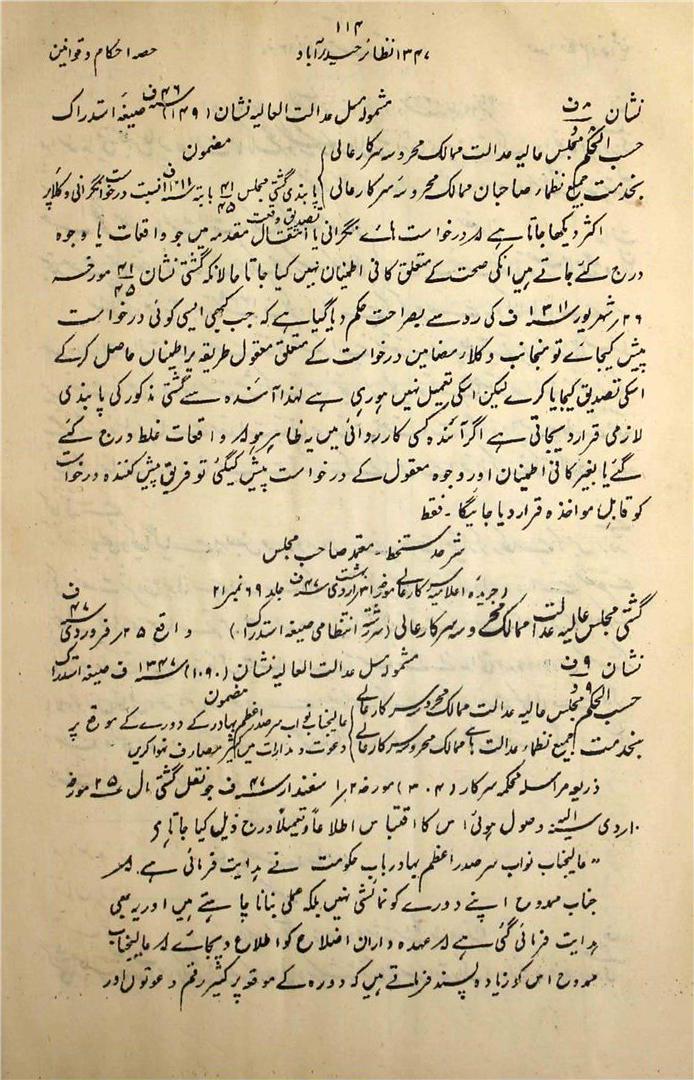 ۱۱۴
۱۳۴۷ نظائر حیدرآباد حصہ احکام و قوانین
نشان ۸ ف مشمولہ مسل عدالت العالیہ نشان (۱۴۹) ۴۶ ف صیغہ استدراک
حسب الحکم مجلس عالیہ عدالت ممالک محروسہ سرکار عالی مضمون
بخدمت جمیع نظماء صاحبان ممالک محروسہ سرکار عالی پابندی گشتی مجلس ۴۱/۴۵ بابتہ ۱۳۱۱ ف نسبت درخواست نگرانی وکلا پر
اکثر دیکھا جاتا ہے کہ درخواست ہائے نگرانی یا انتقال مقدمہ میں جو واقعات یا وجوہ
درج کئے جاتے ہیں انکی صحت کے متعلق کافی اطمینان نہیں کیا جاتا حالانکہ گشتی نشان ۴۱/۴۵ مورخہ
۲۶ شہریور ۱۳۱۱ ف کی رو سے بصراحت حکم دیا گیا ہے کہ جب کبھی ایسی کوئی درخواست
پیش کیجائے تو منجانب وکلاء مضامین درخواست کے متعلق معقول طریقہ پر اطمینان حاصل کر کے
اسکی تصدیق کیجایا کرے لیکن اسکی تعمیل نہیں ہو رہی ہے لہذا آئندہ سے گشتی مذکور کی پابندی
لازمی قرار دیجاتی ہے اگر آئندہ کسی کارروائی میں یہ ظاہر ہو کہ واقعات غلط درج کئے
گئے یا بغیر کافی اطمینان اور وجوہ معقول کے درخواست پیش کیگئی تو فریق پیش کنندہ درخواست
کو قابل مواخذہ قرار دیا جائیگا ۔ فقط
شرحد ستخط ۔ معتمد صاحب مجلس
(جریدہ اعلامیہ سرکار عالی مورخہ ۳۱ اردی بہشت ۴۷ ف جلد ۶۹ نمبر ۲۱
گشتی مجلس عالیہ عدالت ممالک محروسہ سرکار عالی (سررشتہ انتظامی صیغہ استدراک) واقع ۲۵ فروردی ۴۷ ف
نشان ۹ ف مشمولہ مسل عدالت العالیہ نشان (۱۰۹۰) ۱۳۴۷ ف صیغہ استدراک
حسب الحکم مجلس عالیہ عدالت ممالک محروسہ سرکار عالی مضمون عالیجناب نواب سر صدر اعظم بہادر کے دورے کے موقع پر
بخدمت جمیع نظماء عدالت ہائے ممالک محروسہ سرکار عالی دعوت و مدارات میں کثیر مصارف نہوا کریں
ذریعہ مراسلہ محکمہ سرکار (۳۰۴) مورخہ ۱/۲ سفندار ۴۷ ف جو نقل گشتی مال ۲۵ مورخہ
۱۰ اردی الیہ وصول ہوئی اس کا اقتباس اطلاعاً و تعمیلاً درج ذیل کیا جاتا ہے
" عالیجناب نواب سر صدر اعظم بہادر باب حکومت نے ہدایت فرمائی ہے کہ
جناب ممدوح اپنے دورے کو نمائشی نہیں بلکہ عملی بنانا چاہتے ہیں اور یہ بھی
ہدایت فرمائی گئی ہے کہ عہدہ داران اضلاع کو اطلاع دیجائے کہ عالیجناب
ممدوح اس کو زیادہ پسند فرماتے ہیں کہ دورہ کے موقعہ پر کثیر رقم دعوتوں اور